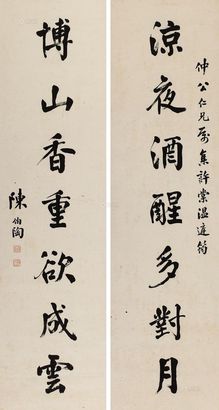 仲公仁兄属集許棠温庭筠
涼夜酒醒多對月
博山香重欲成雲
陳伯陶